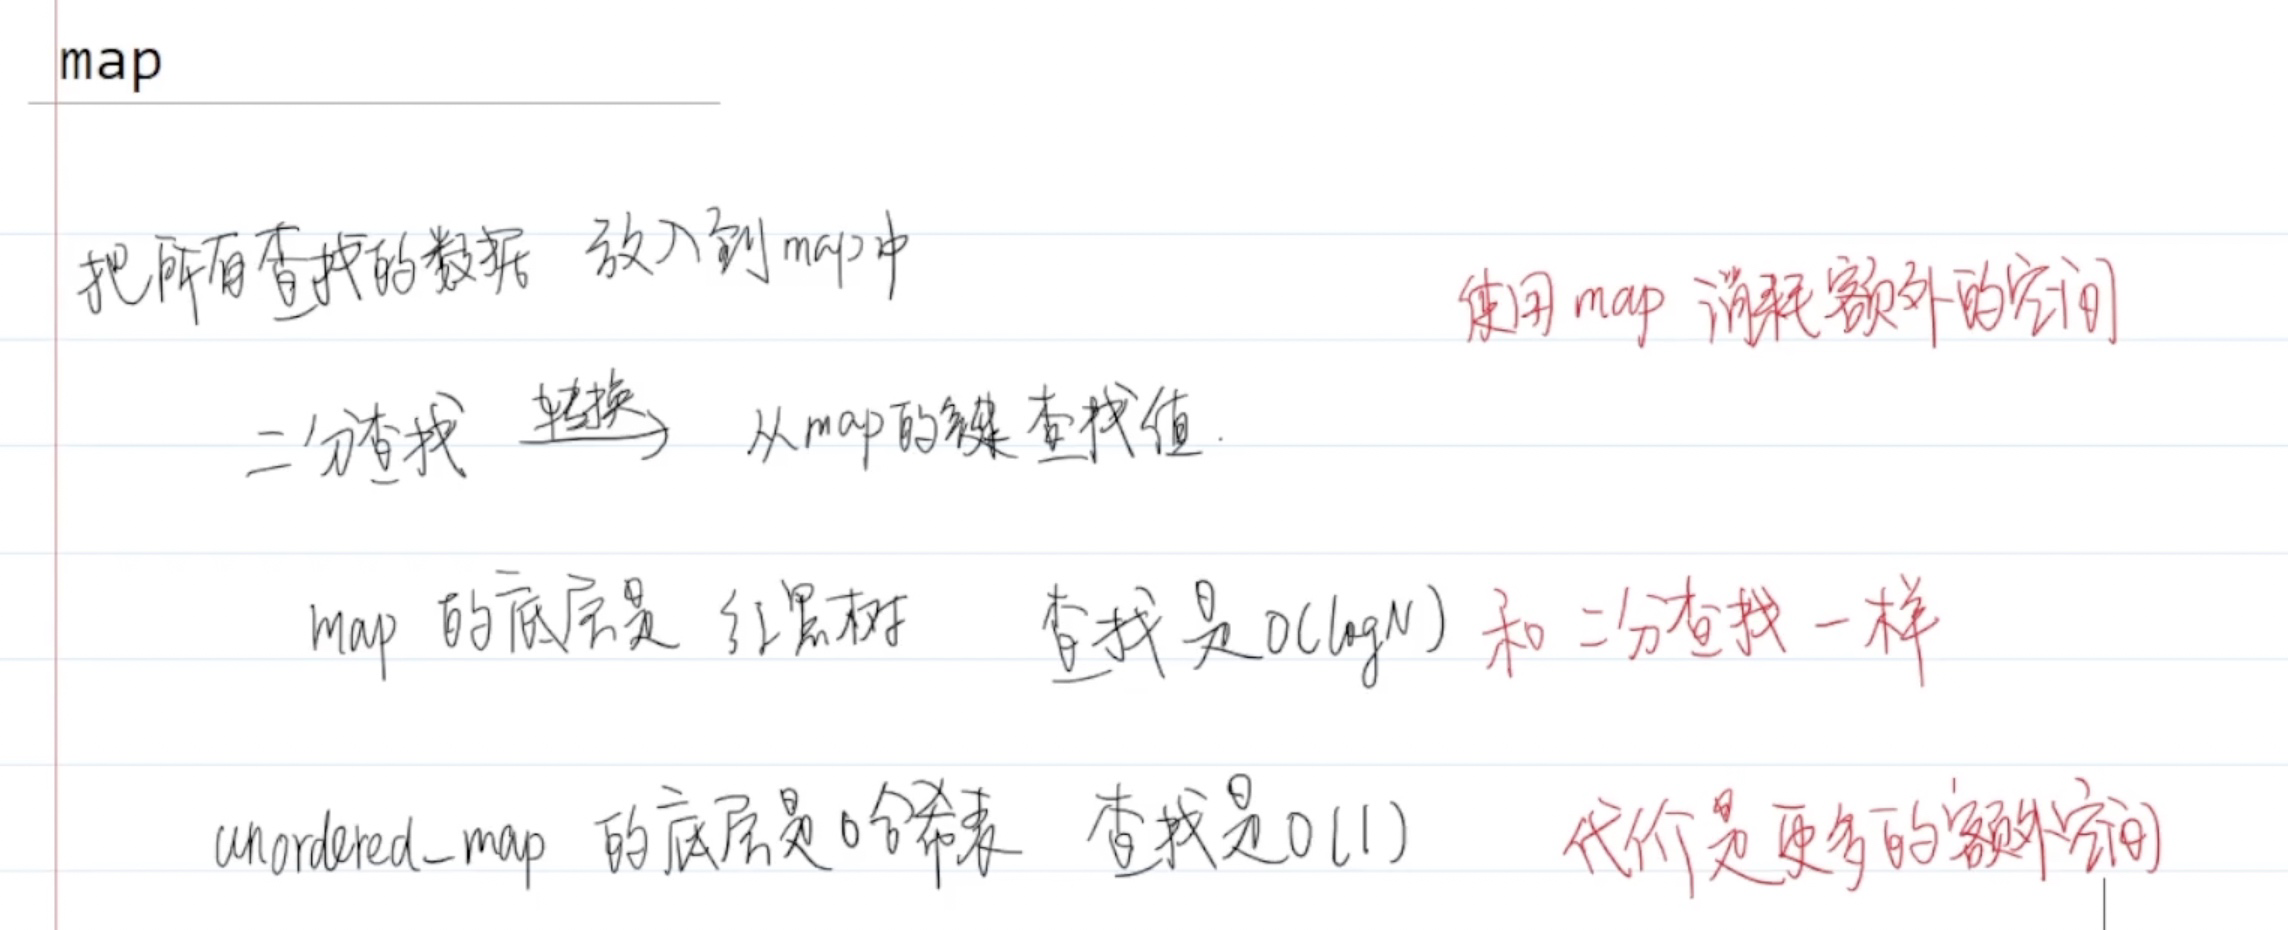 map
把所有查找的数据 放入到map中
使用map 消耗额外的空间
二分查找 转换 从map的键查找值.
map 的底层是 红黑树 查找是O(logN) 和二分查找一样
unordered_map 的底层是哈希表 查找是O(1) 代价是更多的额外空间